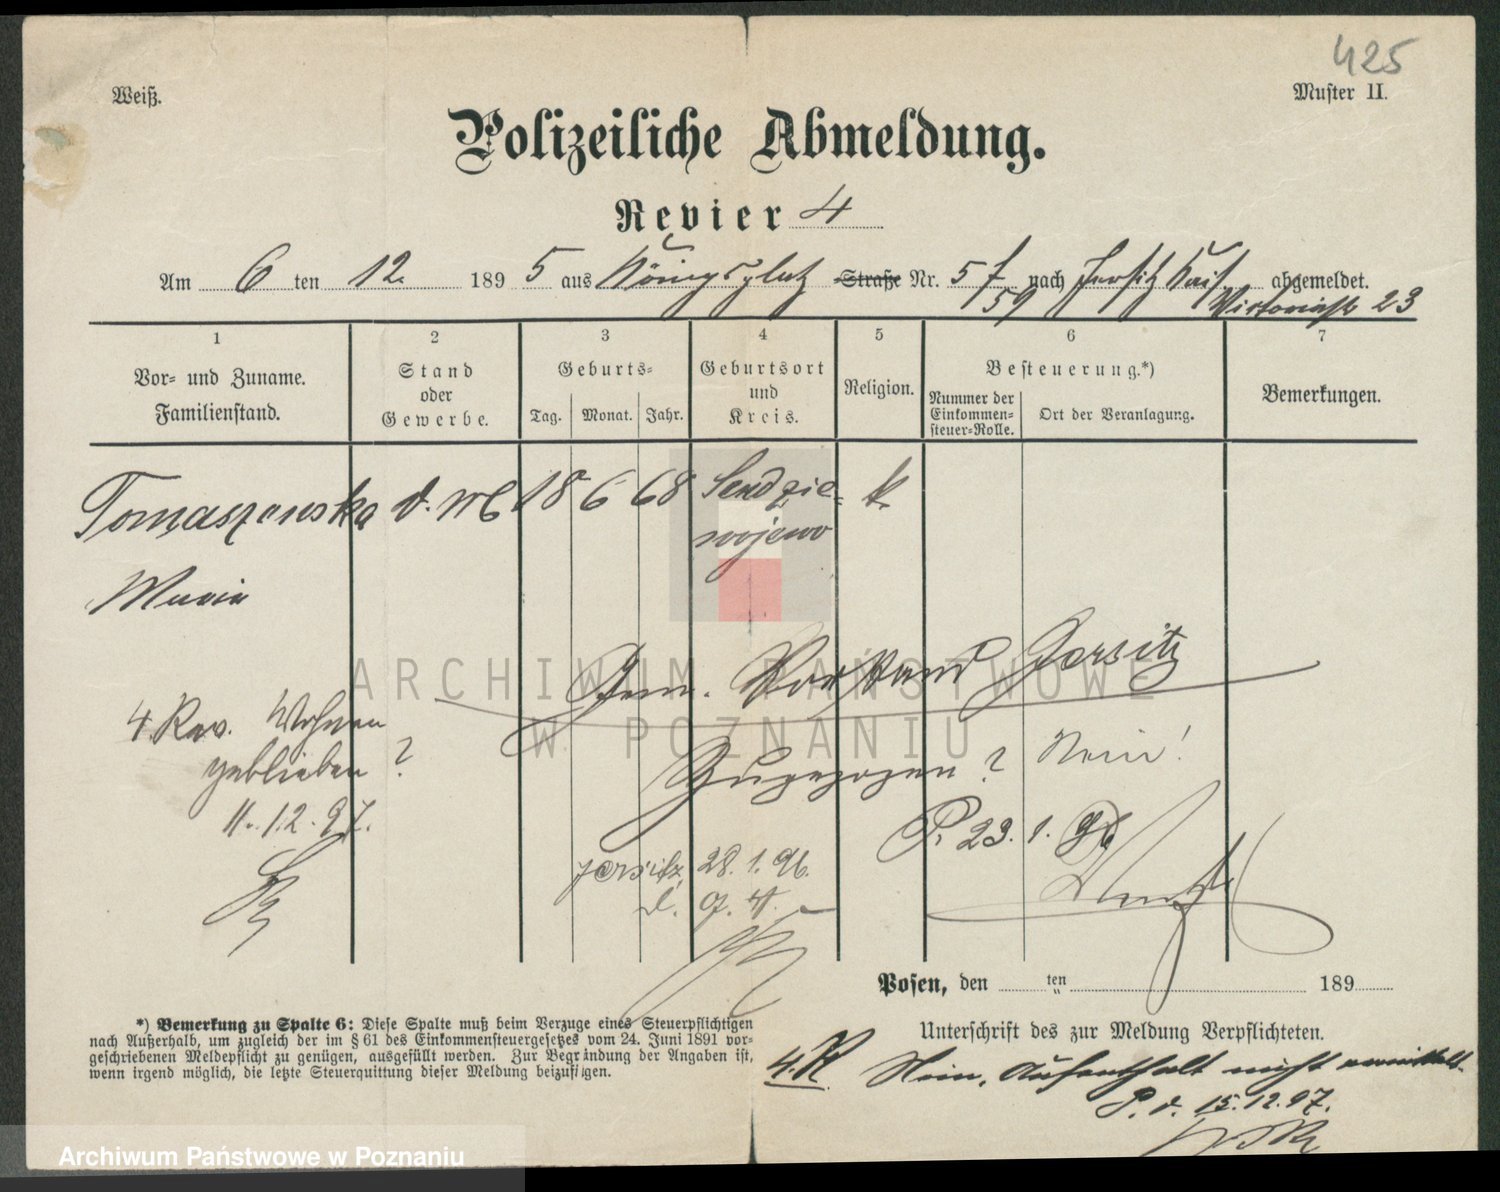 425
Weiß.
Muster II.
Polizeiliche Abmeldung.
Revier 4
Am 6 ten 12. 1895 aus Königsplatz Straße Nr. 5 f nach Jersitz Kais. abgemeldet.
59 Victoriastr 23
1 2 3 4 5 6 7
Vor- und Zuname. Familienstand.
Stand oder Gewerbe.
Geburts-
Tag. Monat. Jahr.
Geburtsort und Kreis.
Religion.
Besteuerung.*)
Nummer der Einkommen-steuer-Rolle.
Ort der Veranlagung.
Bemerkungen.
Tomaszewska d. M 18 6 68 Sendzie- k.
wojewo
Maria
Gem. Vorstand Jersitz
4. Rev. Wohnen
geblieben?
11.12.97.
Zugezogen? Nein!
P. 23. 1. 96
Jersitz, 28. 1. 96.
d. G. V.
Posen, den ten 189
Unterschrift des zur Meldung Verpflichteten.
*) Bemerkung zu Spalte 6: Diese Spalte muß beim Verzuge eines Steuerpflichtigen
nach Außerhalb, um zugleich der im § 61 des Einkommensteuergesetzes vom 24. Juni 1891 vor-
geschriebenen Meldepflicht zu genügen, ausgefüllt werden. Zur Begründung der Angaben ist,
wenn irgend möglich, die letzte Steuerquittung dieser Meldung beizufügen.
4. R Nein, Aufenthalt nicht ermittelt.
P. d. 15.12.97.
ARCHIWUM PAŃSTWOWE
W POZNANIU
Archiwum Państwowe w Poznaniu